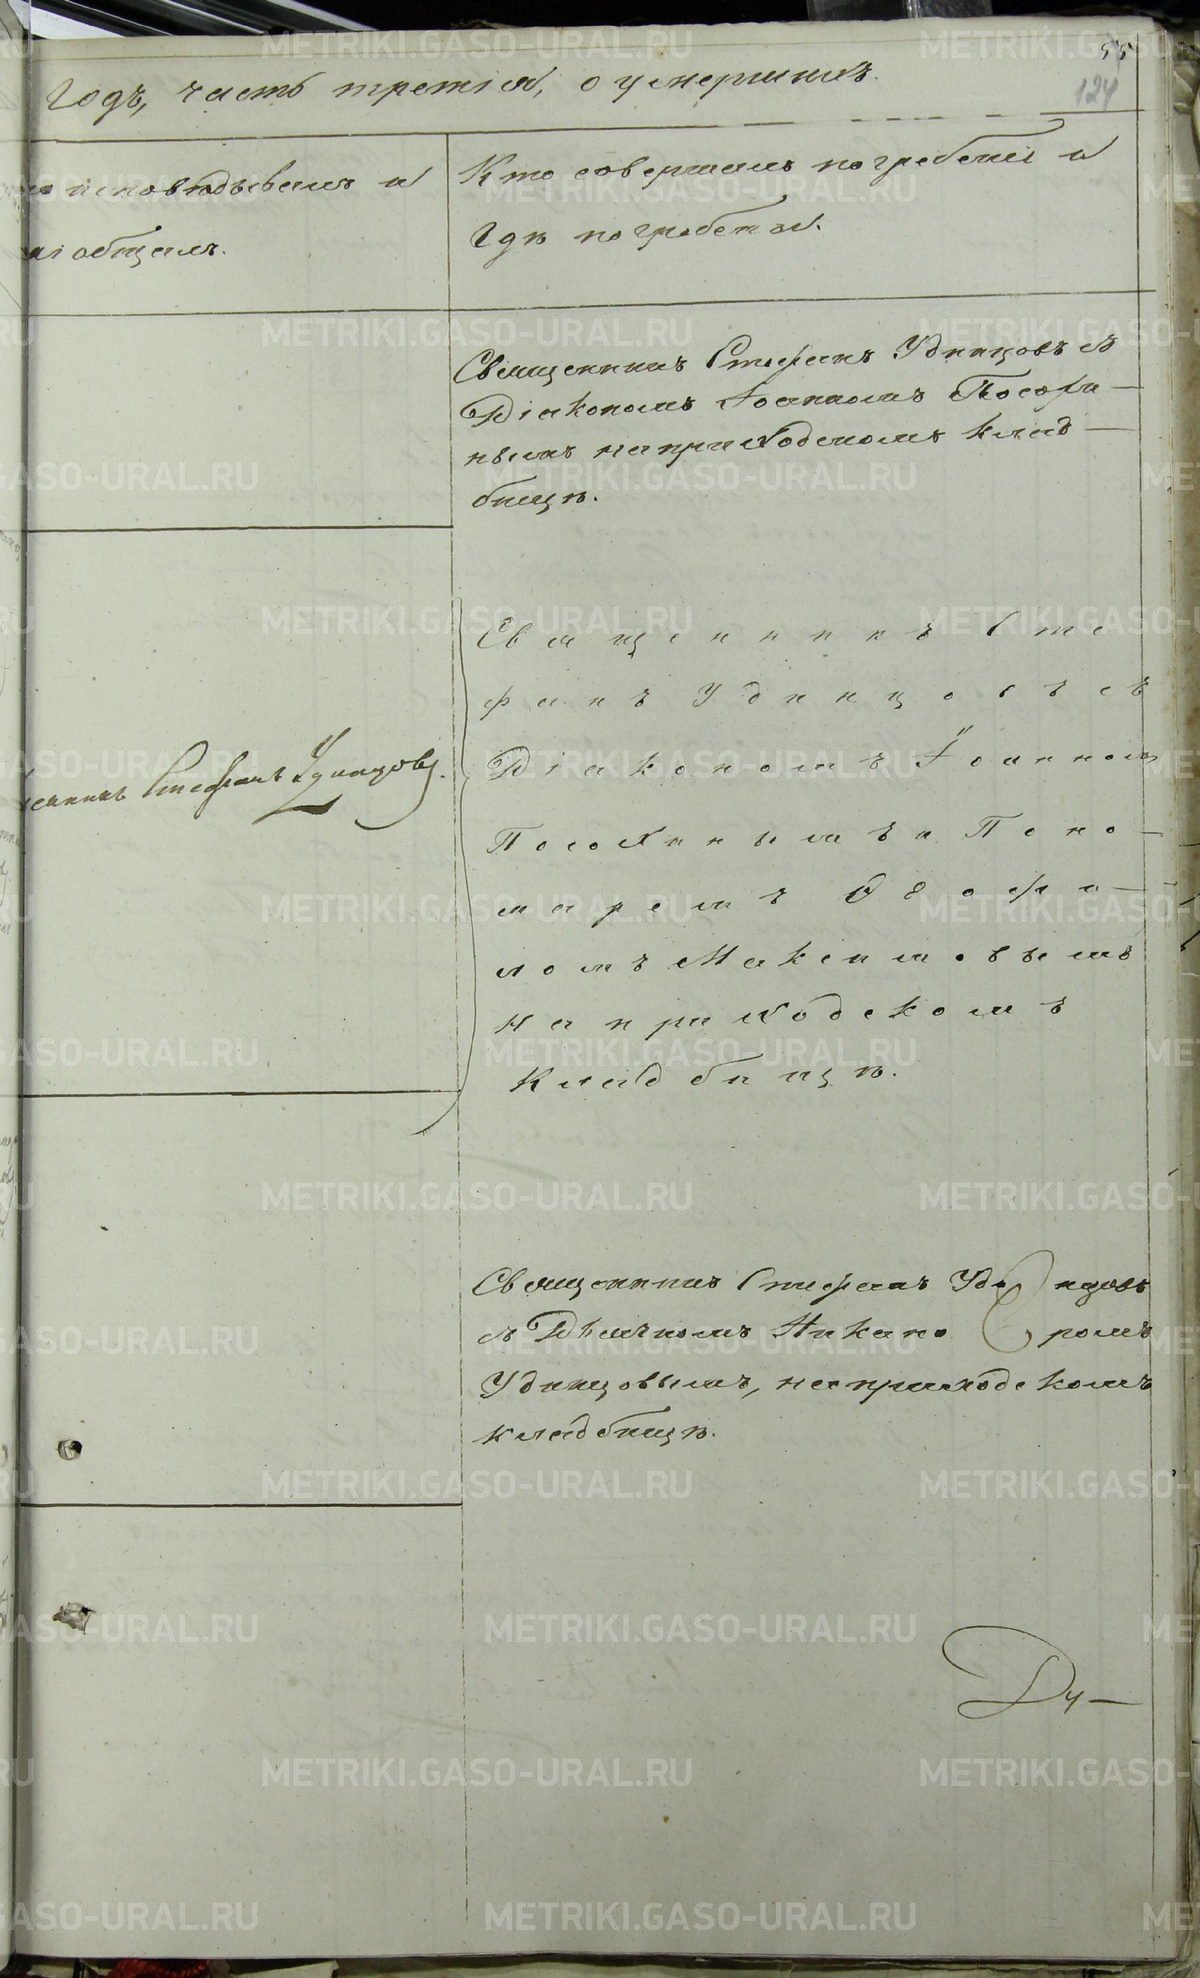 55
124
Годъ, часть третія, о умершихъ.
исповѣдывалъ и
іобщалъ.
Кто совершалъ погребеніе и
гдѣ погребены.
Священникъ Стефанъ Удинцовъ съ
Діакономъ Іоанномъ
нымъ на приходскомъ клад-
бищѣ.
Священникъ Сте
фанъ Удинцовъ съ
Діакономъ Іоанномъ
Пономъ и Поно-
маремъ Ѳеофи-
ломъ Максимовымъ
на приходскомъ
кладбищѣ.
Стефанъ Удинцовъ.
Священникъ Стефанъ Удинцовъ
съ Дьячкомъ Никаноромъ
Удинцовымъ, на приходскомъ
кладбищѣ.
Ду-
METRIKI.GASO-URAL.RU